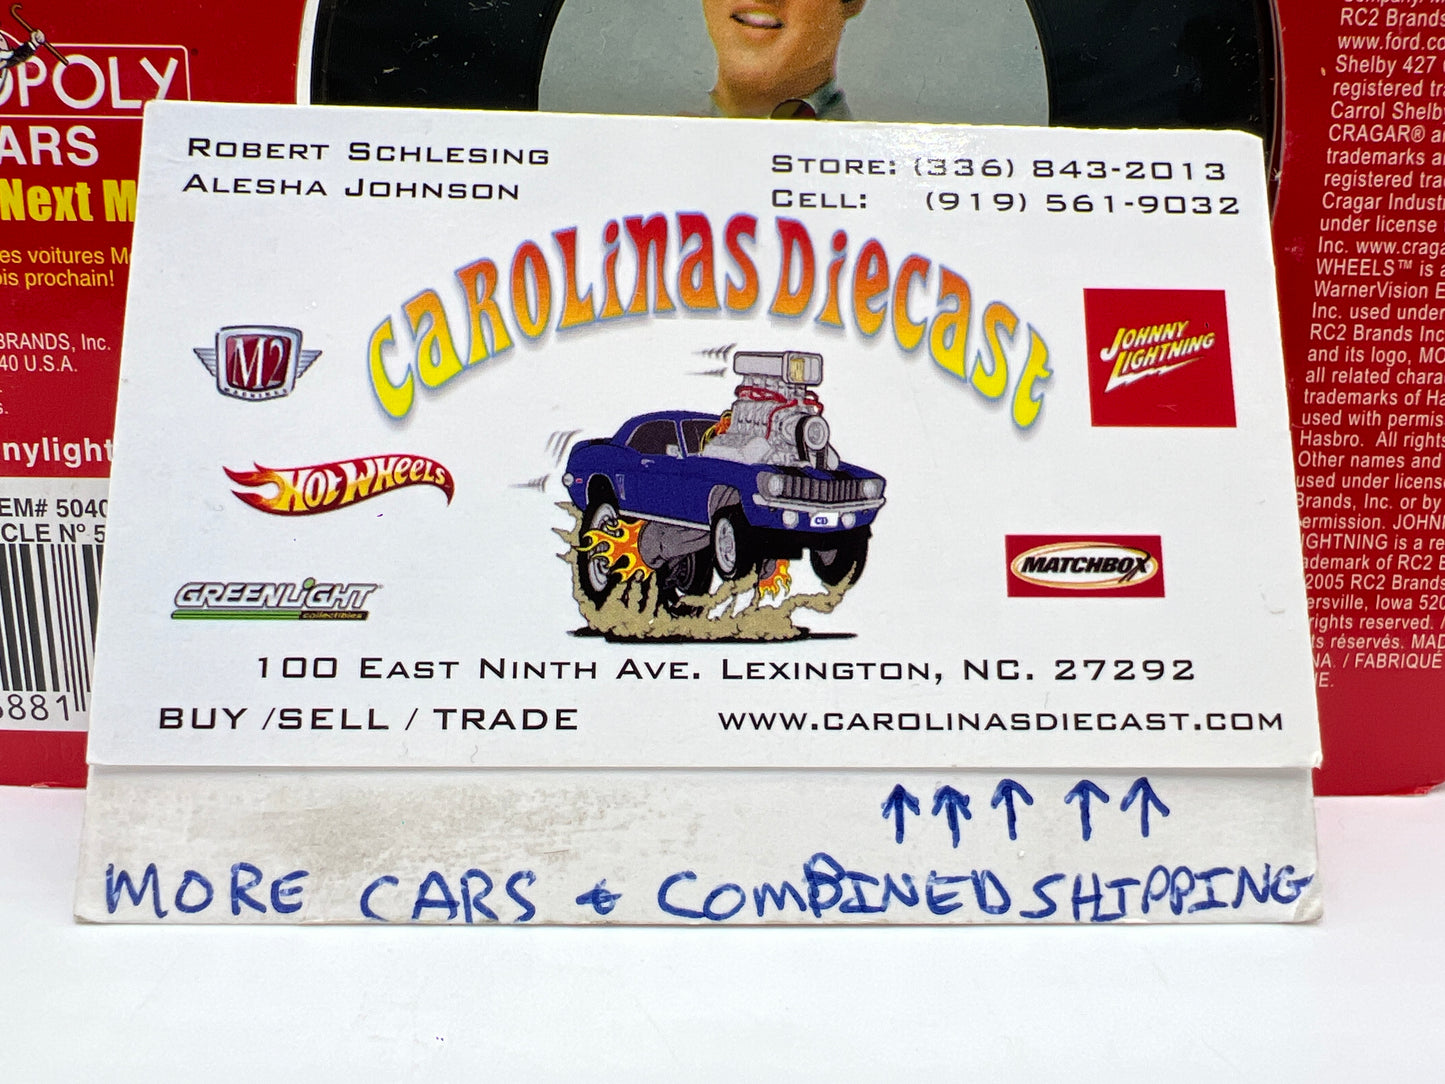 OPOLY
ARS
Next M
es voitures M
ois prochain!
BRANDS, Inc.
40 U.S.A.
s.
nylight
EM# 5040
CLE Nº 5
881
ROBERT SCHLESING
ALESHA JOHNSON
STORE: (336) 843-2013
CELL: (919) 561-9032
CAROLINAS DIECAST
M2
MACHINES
JOHNNY
LIGHTNING
HOT WHEELS
GREENLIGHT
collectibles
MATCHBOX
100 EAST NINTH AVE. LEXINGTON, NC. 27292
BUY /SELL / TRADE
WWW.CAROLINASDIECAST.COM
MORE CARS & COMBINED SHIPPING
RC2 Brands
www.ford.co
Shelby 427
registered tra
Carrol Shelby
CRAGAR® a
trademarks a
registered tra
Cragar Industr
under license
Inc. www.craga
WHEELS™ is a
WarnerVision E
Inc. used under
RC2 Brands Inc
and its logo, MO
all related chara
trademarks of Ha
used with permis
Hasbro. All rights
Other names and
used under license
Brands, Inc. or by
ermission. JOHN
IGHTNING is a re
ademark of RC2 B
2005 RC2 Brands
ersville, Iowa 520
rights reserved. /
ts réservés. MAD
NA. / FABRIQUÉ
E.